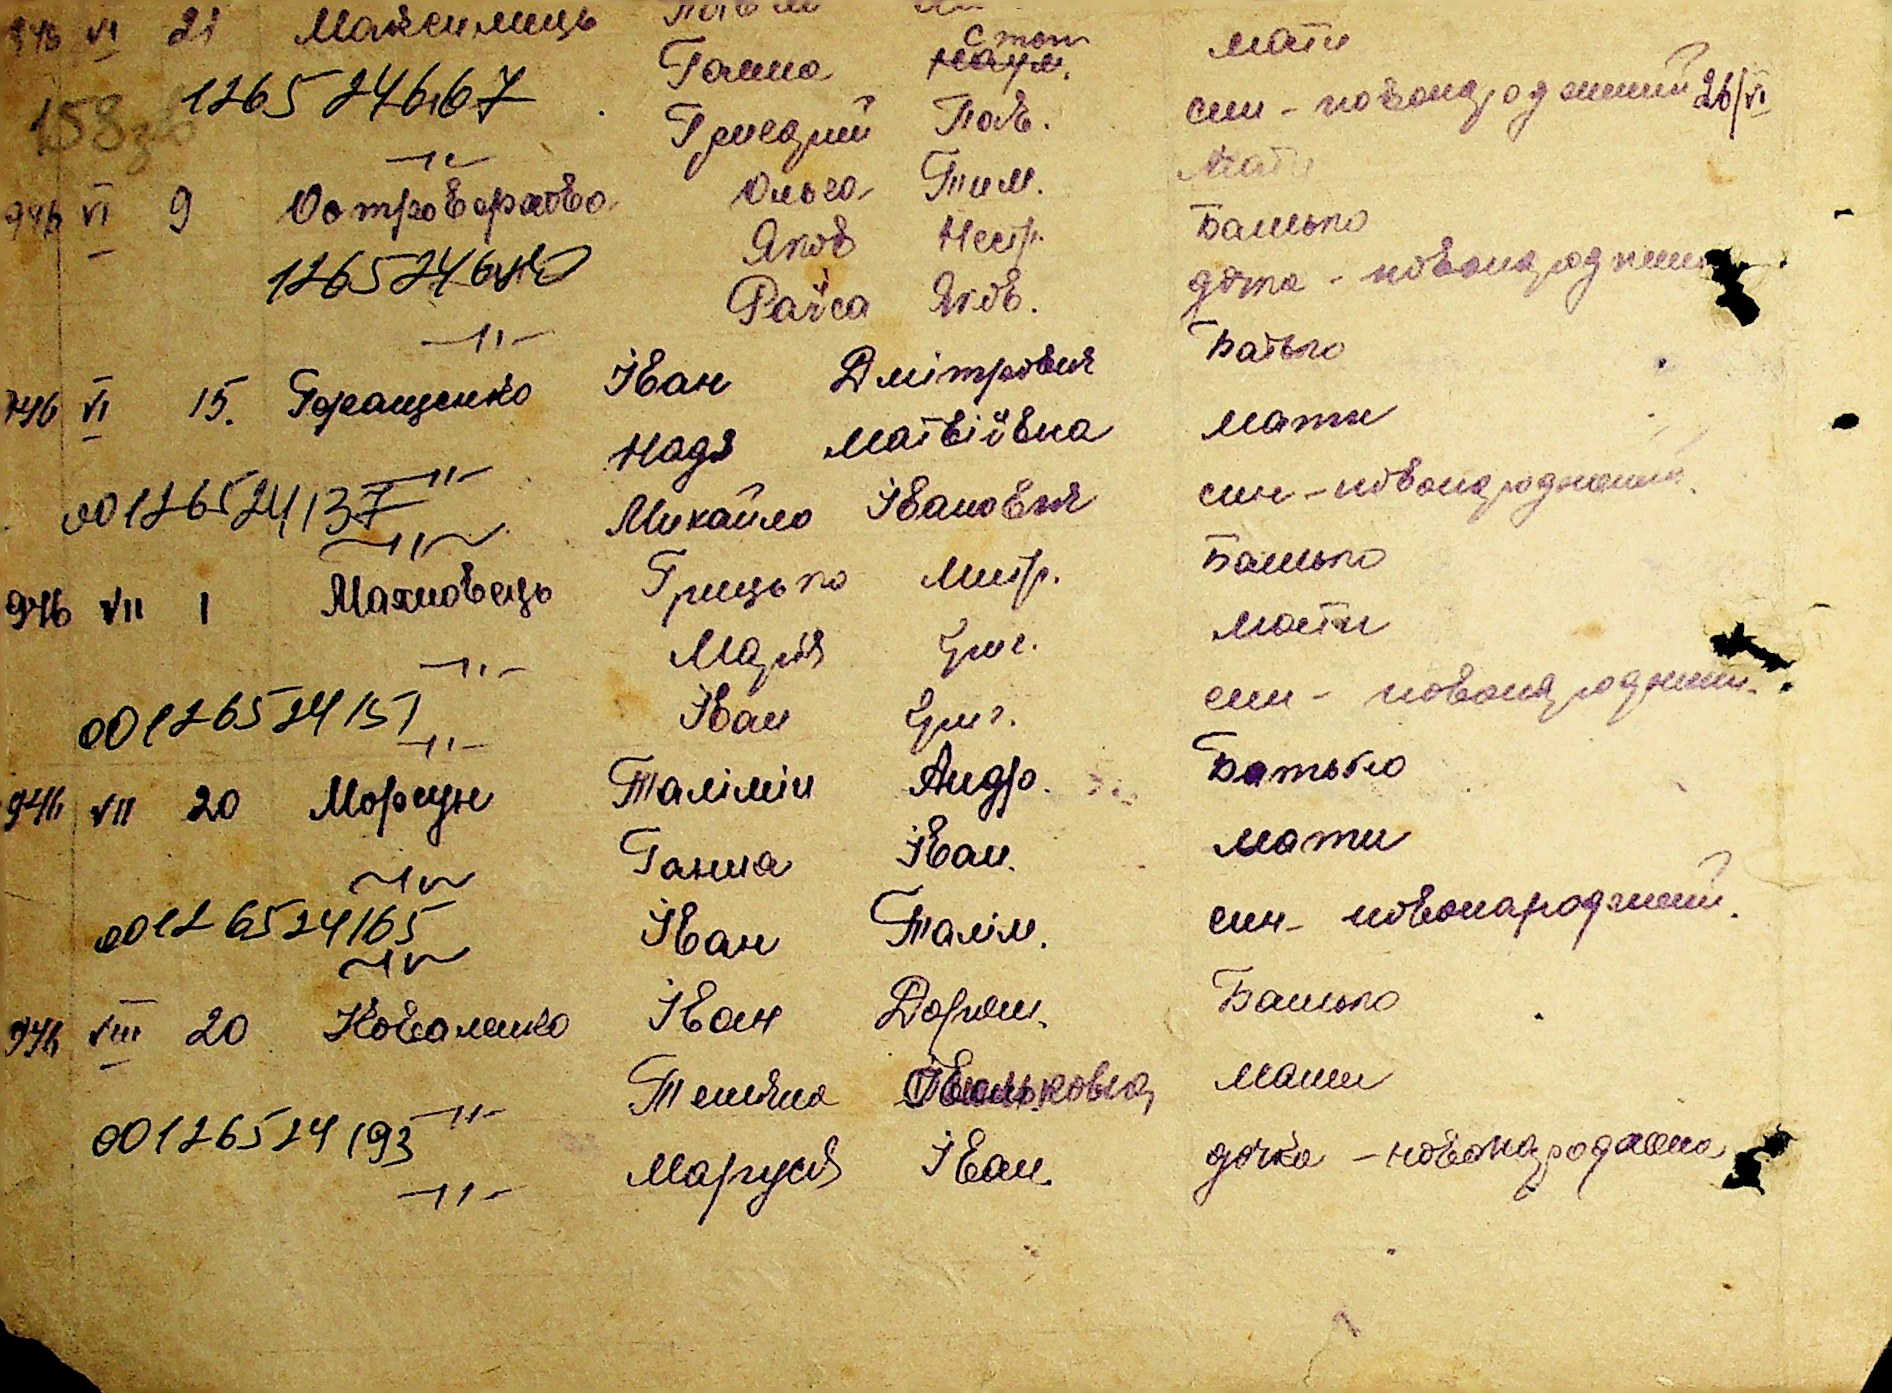 946 VI 21 Максимець
Ганна Стоп Наум. мати
1265246167 Григорій Пав. син - новонароджений 26/VI
158зв
-"- Ольга Тим. мати
946 VI 9 Островерхова Яков Нестр. Батько
1265246 Раїса Яков. дочка - новонароджен
-"-
946 VI 15. Геращенко Іван Дмітрович Батько
-"- Надя Матвіївна мати
00126524137 Михайло Іванович син - новонароджений.
-"-
946 VII 1 Махновець Грицько Митр. Батько
-"- Марія Григ. мати
00126524151 Іван Григ. син - новонароджений.
-"-
946 VII 20 Моргун Талімін Андр. Батько
-"- Ганна Іван. мати
00126524165 Іван Талім. син - новонароджений.
-"-
946 VIII 20 Коваленко Іван Дорош. Батько
-"- Тетяна мати
00126524193 Маруся Іван. дочка - новонароджена
-"-